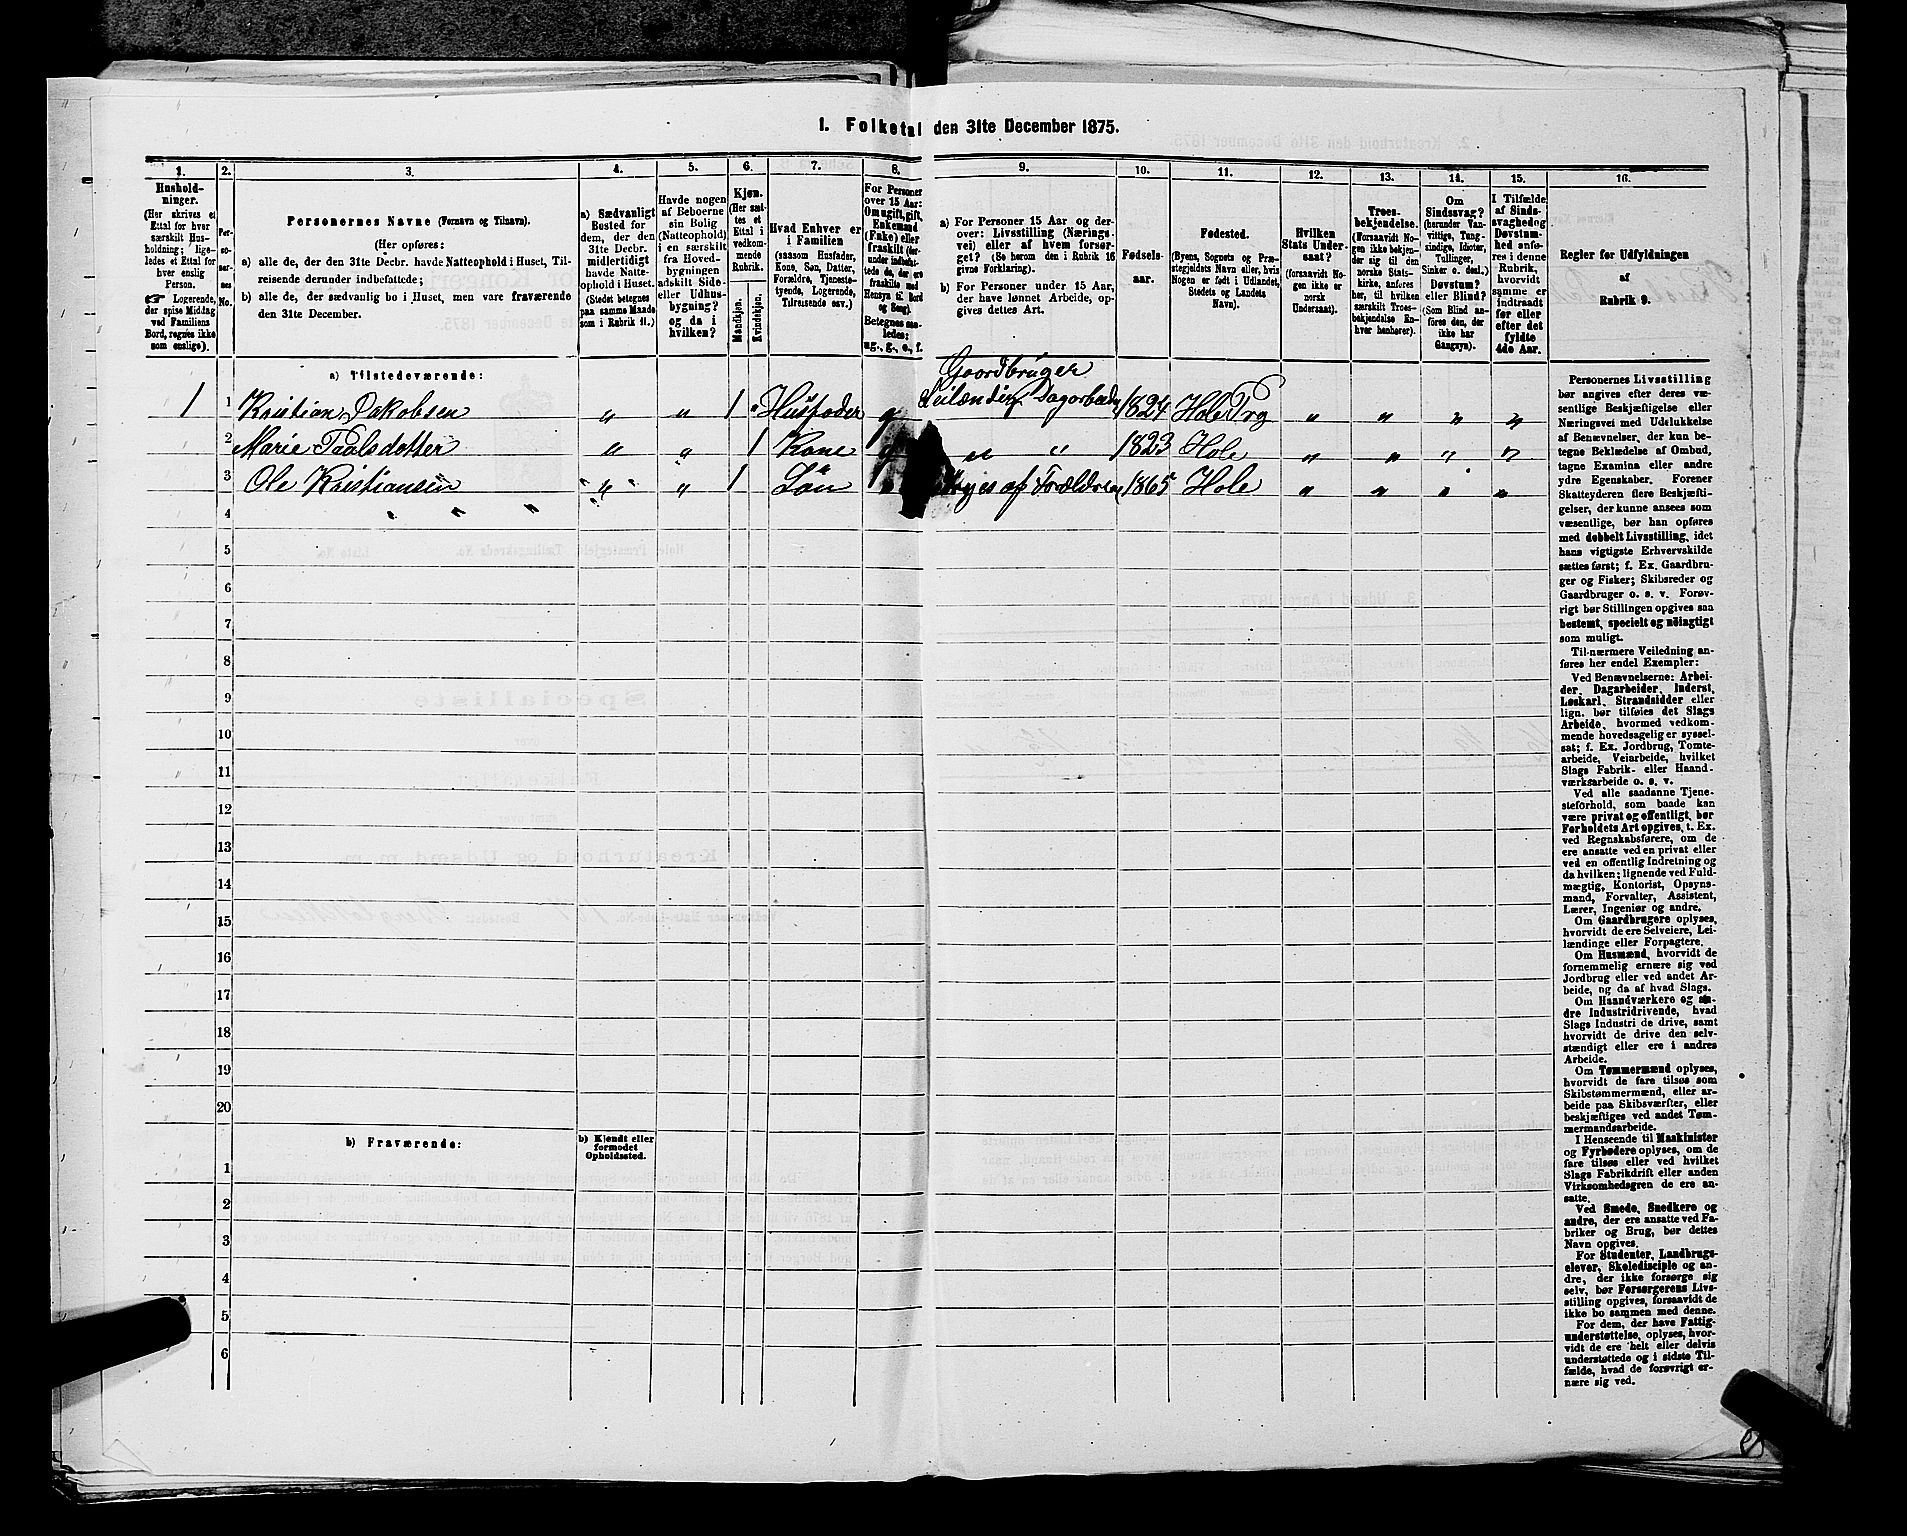 1. Folketal den 31te December 1875.
1. 2. 3. 4. 5. 6. 7. 8. 9. 10. 11. 12. 13. 14. 15. 16.
Hushold-
ninger.
(Her skrives et
Ettal for hver
særskilt Hus-
holdning; lige-
ledes et Ettal for
hver enslig
Person.
Logerende,
der spise Middag
ved Familiens
Bord, regnes ikke
som enslige).
Per-
so-
ner-
nes
No.
Personernes Navne (Fornavn og Tilnavn).
(Her opføres:
a) alle de, der den 31te Decbr. havde Natteophold i Huset, Til-
reisende derunder indbefattede;
b) alle de, der sædvanlig bo i Huset, men vare fraværende
den 31te December.
a) Sædvanligt
Bosted for
dem, der den
31te Decbr.
midlertidigt
havde Natte-
ophold i Huset.
(Stedet betegnes
paa samme Maade
som i Rubrik 11.)
Havde nogen
af Beboerne
sin Bolig
(Natteophold)
i en særskilt
fra Hoved-
bygningen
adskilt Side-
eller Udhus-
bygning?
og da i
hvilken?
Kjøn.
(Her sæt-
tes et
Ettal i
vedkom-
mende
Rubrik.
Mandkjøn.
Kvindekjøn.
Hvad Enhver er
i Familien
(saasom Husfader,
Kone, Søn, Datter,
Forældre, Tjeneste-
tyende, Logerende,
Tilreisende osv.)
For Personer
over 15 Aar:
Om ugift, gift,
Enkemand
(Enke) eller
fraskilt (her-
under indbefat-
tede de, der ere
fraskilte med
Hensyn til Bord
og Seng).
Betegnes saa-
ledes:
ug., g., e., f.
a) For Personer 15 Aar og der-
over: Livsstilling (Nærings-
vei) eller af hvem forsør-
get? (Se herom den i Rubrik 16
givne Forklaring).
b) For Personer under 15 Aar,
der have lønnet Arbeide, op-
gives dettes Art.
Fødsels-
aar.
Fødested.
(Byens, Sognets og Præ-
stegjeldets Navn eller, hvis
Nogen er født i Udlandet,
Stedets og Landets
Navn).
Hvilken
Stats Under-
saat?
(forsaavidt No-
gen ikke er
norsk
Undersaat).
Troes-
bekjendelse.
(Forsaavidt No-
gen ikke bekjen-
der sig til den
norske Stats-
kirke, anføres
her, til hvilken
særskilt Troes-
bekjendelse En-
hver henhører).
Om
Sindssvag?
(herunder Van-
vittige, Tung-
sindige, Idioter,
Tullinger,
Sinker o. desl.)
Døvstum?
eller Blind?
(Som Blind an-
føres den, der
ikke har
Gangsyn).
I Tilfælde
af Sinds-
svaghed og
Døvstum-
hed anfø-
res i denne
Rubrik,
hvorvidt
samme er
indtraadt
før eller
efter det
fyldte
4de Aar.
Regler for Udfyldningen
af
Rubrik 9.
a) Tilstedeværende:
Gaardbruger
1 1 Kristian Jakobsen " " 1 Husfader g Leilænding Dagarbeid 1824 Hole Prg " " " "
2 Marie Paalsdatter " " 1 Kone g " " 1823 Hole " " " "
3 Ole Kristiansen " " 1 Søn af Forældrene 1865 Hole " " " "
4 " " " "
5
6
7
8
9
10
11
12
13
14
15
16
17
18
19
20
b) Fraværende:
b) Kjendt eller
formodet
Opholdssted.
1
2
3
4
5
6
Personernes Livsstilling
bør angives efter deres væ-
sentlige Beskjæftigelse eller
Næringsvei med Udelukkelse
af Benævnelser, der kun be-
tegne Beklædelse af Ombud,
tagne Examina eller andre
ydre Egenskaber. Forener
Skatteyderen flere Beskjæfti-
gelser, der kunne ansees som
væsentlige, bør han opføres
med dobbelt Livsstilling, idet
hans vigtigste Erhvervskilde
sættes først; f. Ex. Gaardbru-
ger og Fisker; Skibsreder og
Gaardbruger o. s. v. Forøv-
rigt bør Stillingen opgives saa
bestemt, specielt og nøiagtigt
som muligt.
Til nærmere Veiledning an-
føres her endel Exempler:
Ved Benævnelserne: Arbei-
der, Dagarbeider, Inderst,
Løskarl, Strandsidder eller
lign. bør tilføies det Slags
Arbeide, hvormed vedkom-
mende hovedsagelig er syssel-
sat; f. Ex. Jordbrug, Tomte-
arbeide, Veiarbeide, hvilket
Slags Fabrik- eller Haand-
værksarbeide o. s. v.
Ved alle saadanne Tjene-
steforhold, som baade kan
være privat og offentligt, bør
Forholdets Art opgives, t. Ex.
ved Regnskabsførere, om de
ere ansatte ved en privat eller
ved en offentlig Indretning og
da hvilken; lignende ved Fuld-
mægtig, Kontorist, Opsyns-
mand, Forvalter, Assistent,
Lærer, Ingeniør og andre.
Om Gaardbrugere oplyses,
hvorvidt de ere Selveiere, Lei-
lændinge eller Forpagtere.
Om Husmænd, hvorvidt de
fornemmelig ernære sig ved
Jordbrug eller ved andet Ar-
beide, og da af hvad Slags.
Om Haandværkere og an-
dre Industridrivende, hvad
Slags Industri de drive, samt
hvorvidt de drive den selv-
stændigt eller ere i andres
Arbeide.
Om Tømmermænd oplyses,
hvorvidt de fare tilsøs som
Skibstømmermænd, eller ar-
beide paa Skibsværfter, eller
beskjæftiges ved andet Tøm-
mermandsarbeide.
I Henseende til Maskinister
og Fyrbødere oplyses, om de
fare tilsøs eller ved hvilket
Slags Fabrikdrift eller anden
Virksomhedsgren de ere an-
satte.
Ved Smede, Snedkere og
andre, der ere ansatte ved Fa-
briker og Brug, bør dettes
Navn opgives.
For Studenter, Landbrugs-
elever, Skoledisciple og an-
dre, der ikke forsørge sig
selv, bør Forsørgerens Livs-
stilling opgives, forsaavidt de
ikke bo sammen med denne.
For dem, der have Fattig-
understøttelse, oplyses, hvor-
vidt de ere helt eller delvis
understøttede og i sidste Til-
fælde, hvad de forøvrigt er-
nære sig ved.